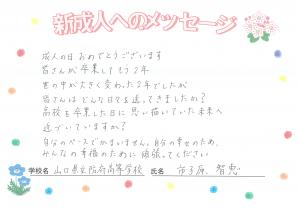 新成人へのメッセージ
成人の日 おめでとうございます
皆さんが卒業してもう2年
世の中が大きく変わった2年でしたが
皆さんはどんな日々を送ってきましたか?
高校を卒業した日に思い描いていた未来へ
近づいていますか?
自分のペースでかまいません。自分の幸せのため、
みんなの幸福のために頑張ってください
学校名 山口県立防府高等学校 氏名 市子原 智恵